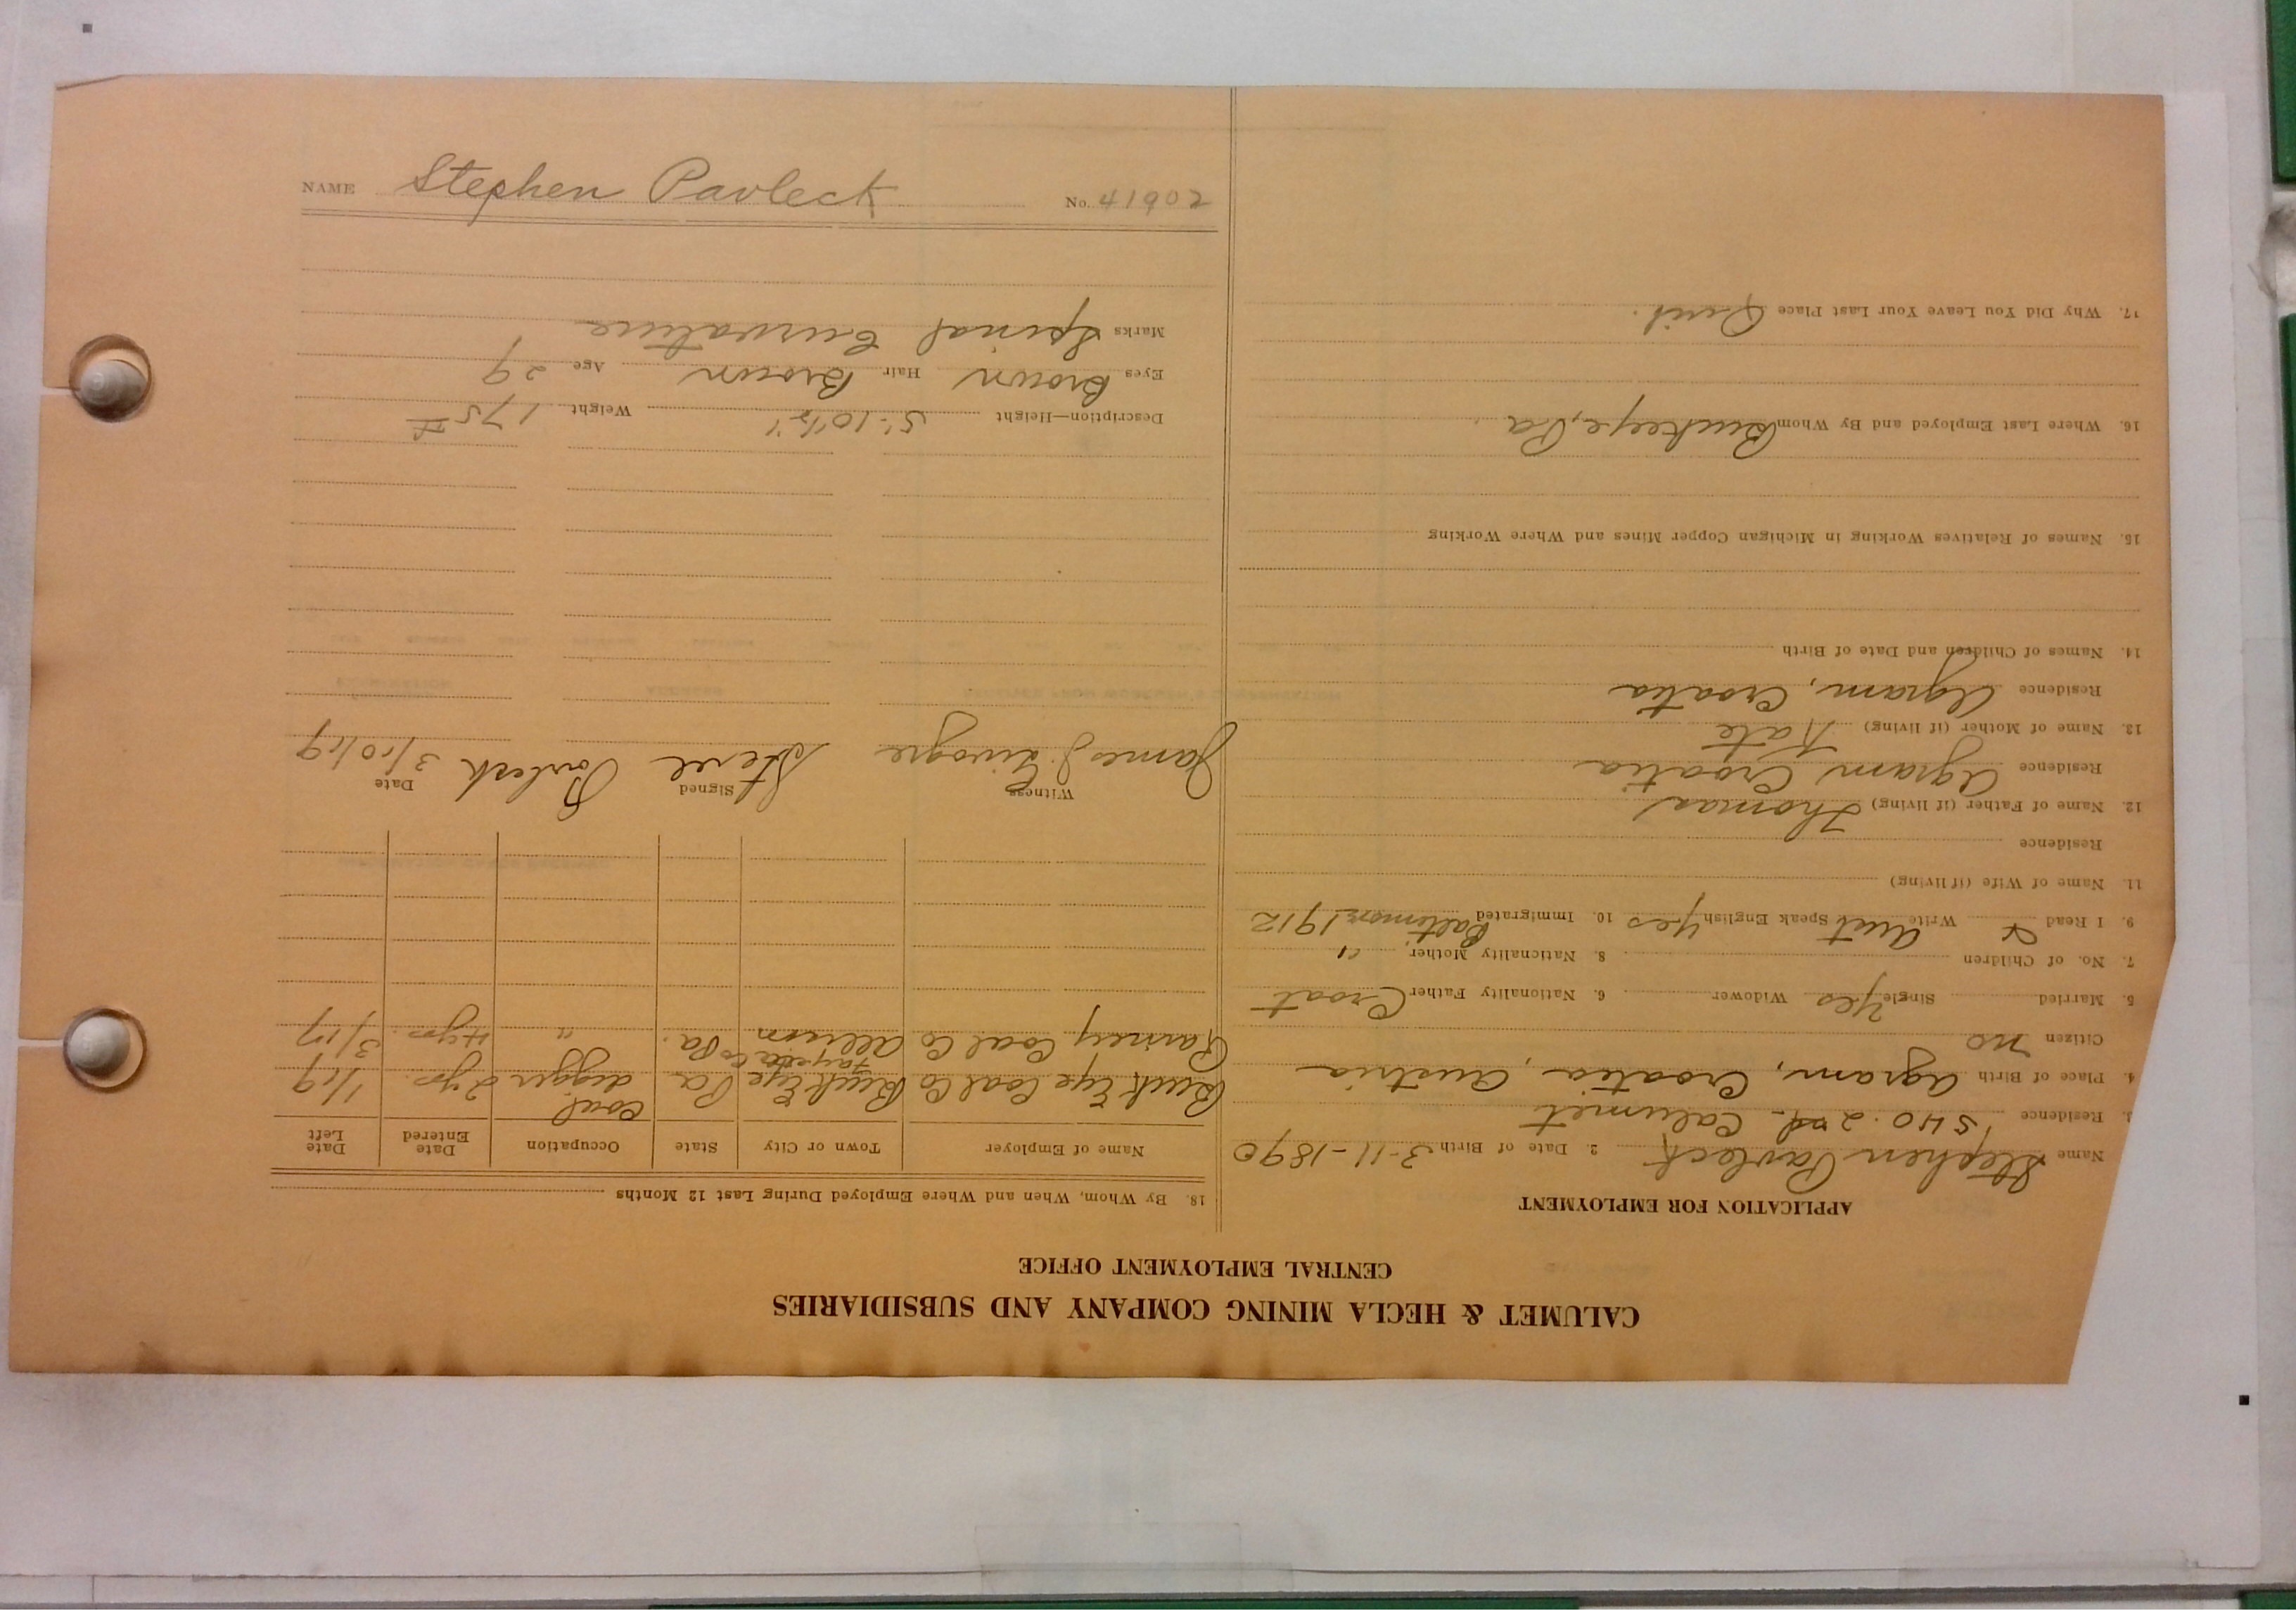 CALUMET & HECLA MINING COMPANY AND SUBSIDIARIES
CENTRAL EMPLOYMENT OFFICE
APPLICATION FOR EMPLOYMENT
Name Stephen Pavleck 2. Date of Birth 3-11-1890
3. Residence 540. 2nd Calumet
4. Place of Birth Agram, Croatia, Austria
Citizen no
5. Married Single Yes Widower 6. Nationality Father Croat
7. No. of Children 8. Nationality Mother "
9. I Read & Write Aust Speak English Yes 10. Immigrated Baltimore 1912
11. Name of Wife (if living)
Residence
12. Name of Father (if living) Thomas
Residence Agram Croatia
13. Name of Mother (if living) Kate
Residence Agram, Croatia
14. Names of Children and Date of Birth
15. Names of Relatives Working in Michigan Copper Mines and Where Working
16. Where Last Employed and By Whom Buckeye, Pa
17. Why Did You Leave Your Last Place Quit.
18. By Whom, When and Where Employed During Last 12 Months
Name of Employer Town or City State Occupation Date Entered Date Left
Buck Eye Coal Co Buck Eye Pa coal digger 2 yrs. 1/19
Rainey Coal Co Allison Fayette Co Pa. " 4 yrs. 3/17
Witness Signed Date
James J. Steve Pavlesk 3/10/19
Description—Height 5'-10½" Weight 175#
Eyes Brown Hair Brown Age 29
Marks Spinal Curvature
NAME Stephen Pavleck No. 41902